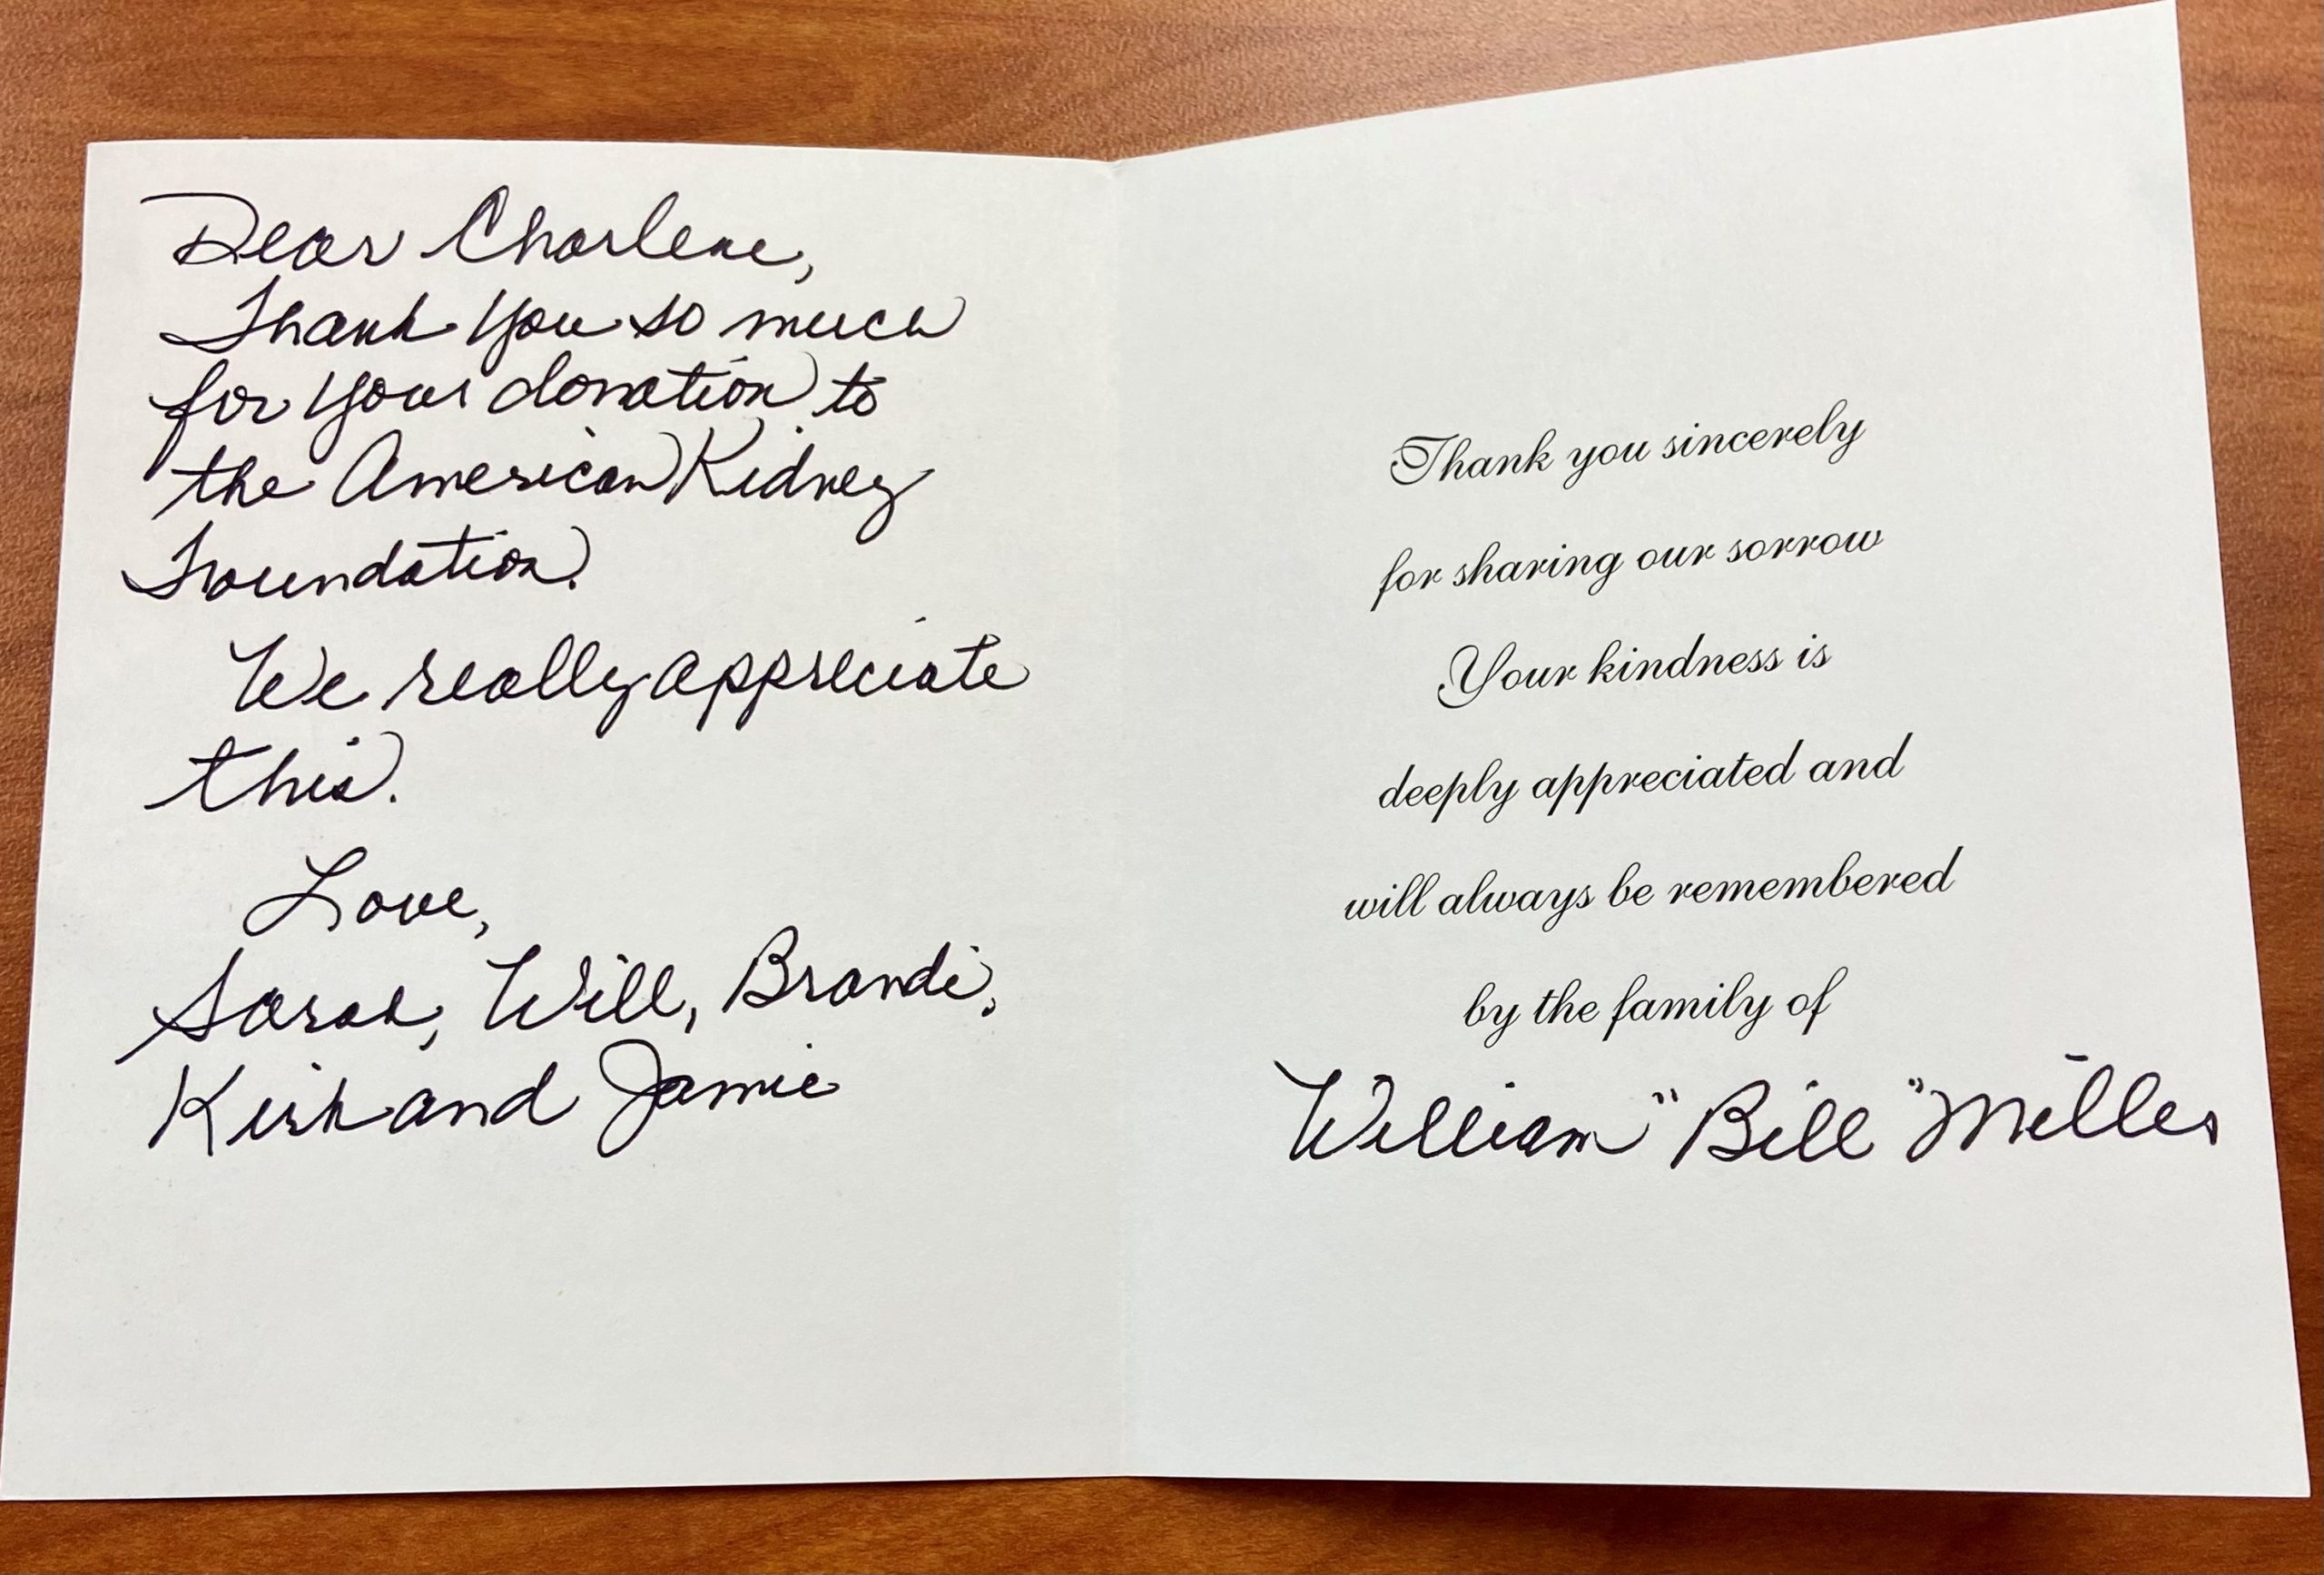 Dear Charlene,
Thank you so much
for your donation to
the American Kidney
Foundation.
We really appreciate
this.
Love,
Sarah, Will, Brandi,
Kirk and Jamie
Thank you sincerely
for sharing our sorrow
Your kindness is
deeply appreciated and
will always be remembered
by the family of
William "Bill" Miller